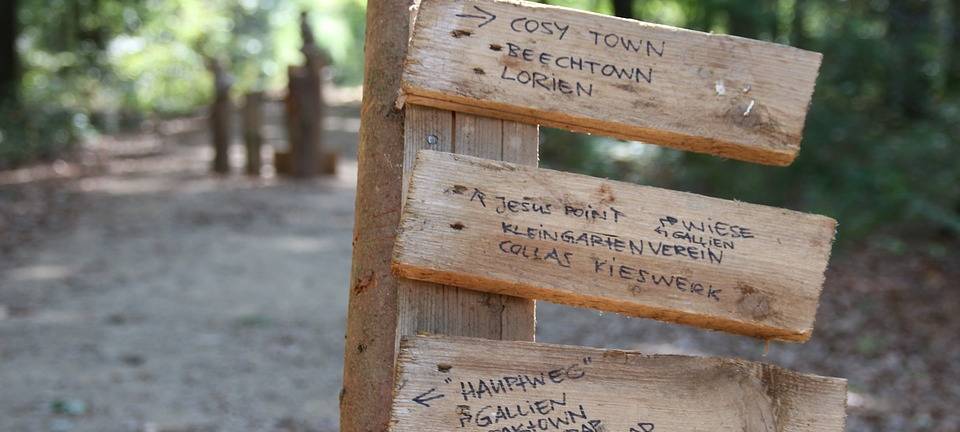 → COSY TOWN
BEECHTOWN
LORIEN
JESUS POINT WIESE
GALLIEN
KLEINGARTENVEREIN
COLLAS KIESWERK
← "HAUPTWEG"
GALLIEN